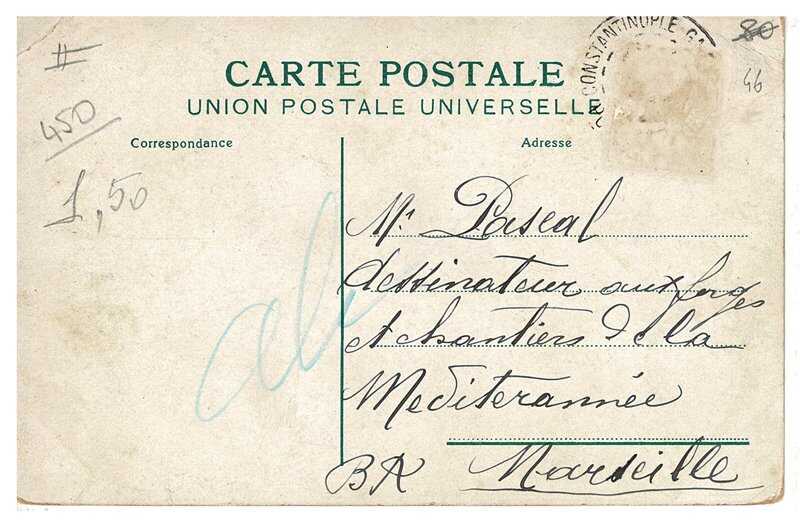 CONSTANTINOPLE GA
80
46
#
CARTE POSTALE
UNION POSTALE UNIVERSELLE
450
Correspondance
Adresse
1,50
Mr Pascal
dessinateur aux forges
et chantiers de la
Mediterannée
BR Marseille